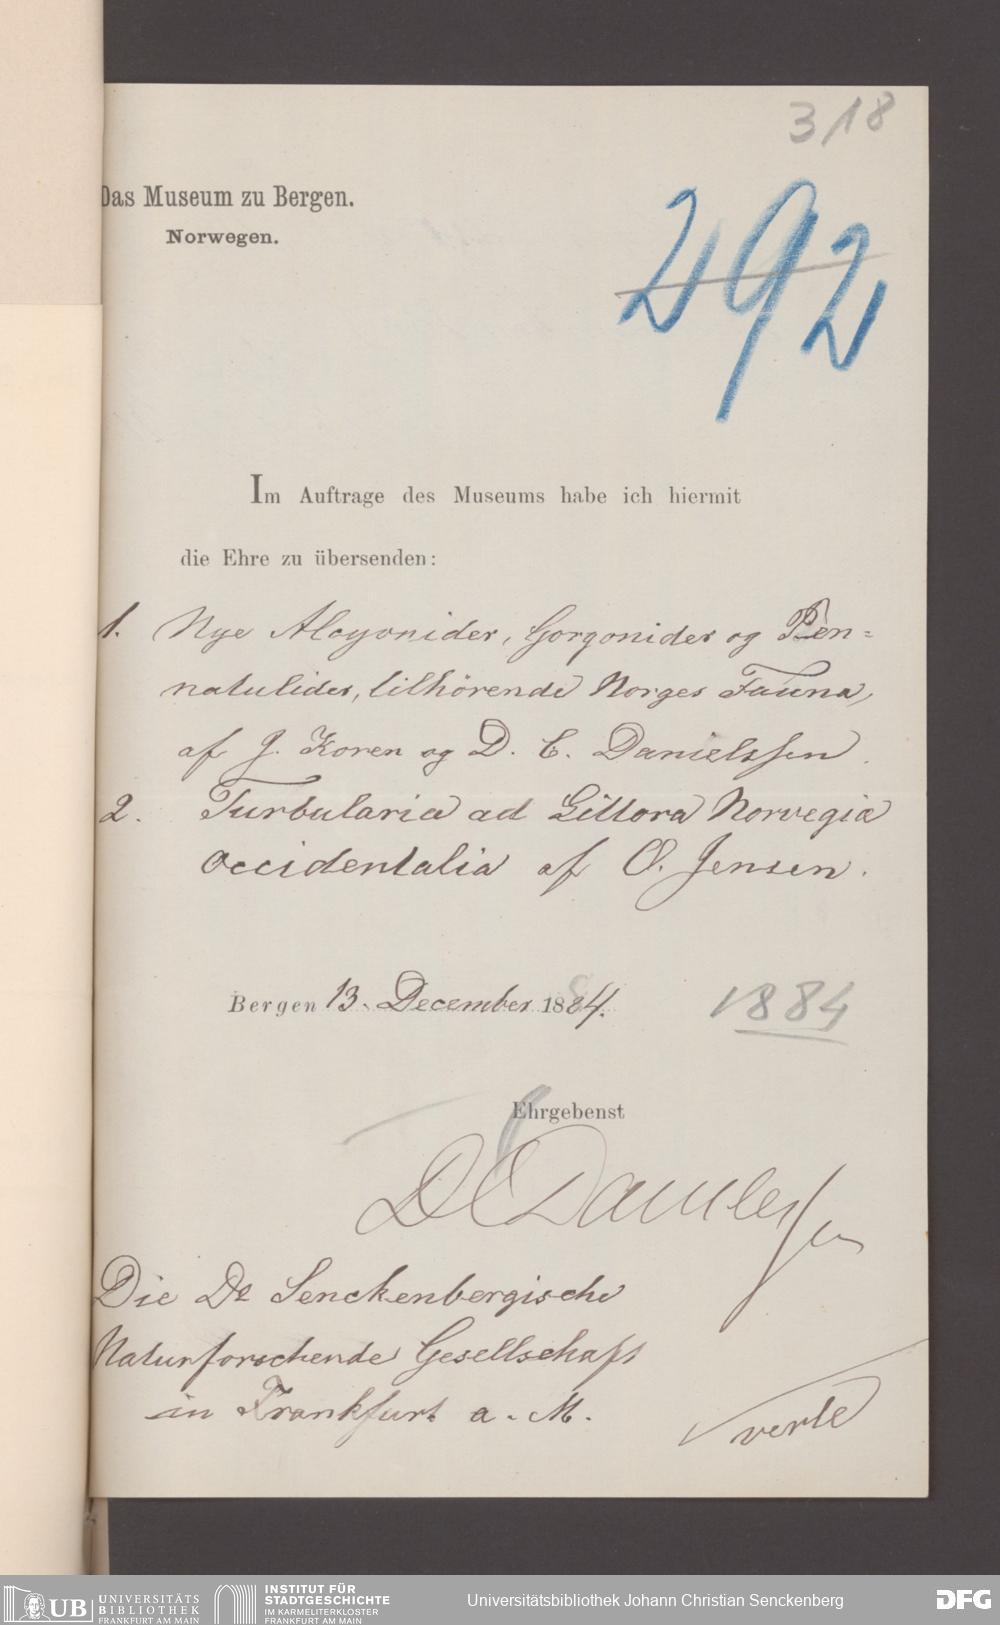 318
Das Museum zu Bergen.
Norwegen.
292
Im Auftrage des Museums habe ich hiermit
die Ehre zu übersenden:
1. Nye Alcyonider, Gorgonider og Pen=
natulider, tilhörende Norges Fauna,
af J. Koren og D. C. Danielssen.
2. Turbularia ad Littora Norvegia
occidentalia af O. Jensen.
Bergen 13. December 1884.
1884
Ehrgebenst
D C Danielssen
Die Dr Senckenbergische
Naturforschende Gesellschaft
in Frankfurt a. M.
verte
UB UNIVERSITÄTS
BIBLIOTHEK
FRANKFURT AM MAIN
INSTITUT FÜR
STADTGESCHICHTE
IM KARMELITERKLOSTER
FRANKFURT AM MAIN
Universitätsbibliothek Johann Christian Senckenberg
DFG